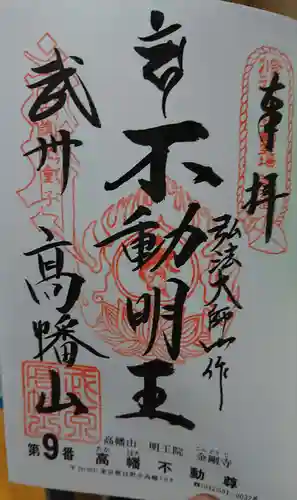 奉拝
弘法大師山作
不動明王
武州
高幡山
高幡山 明王院 金剛寺
第9番 高幡不動尊